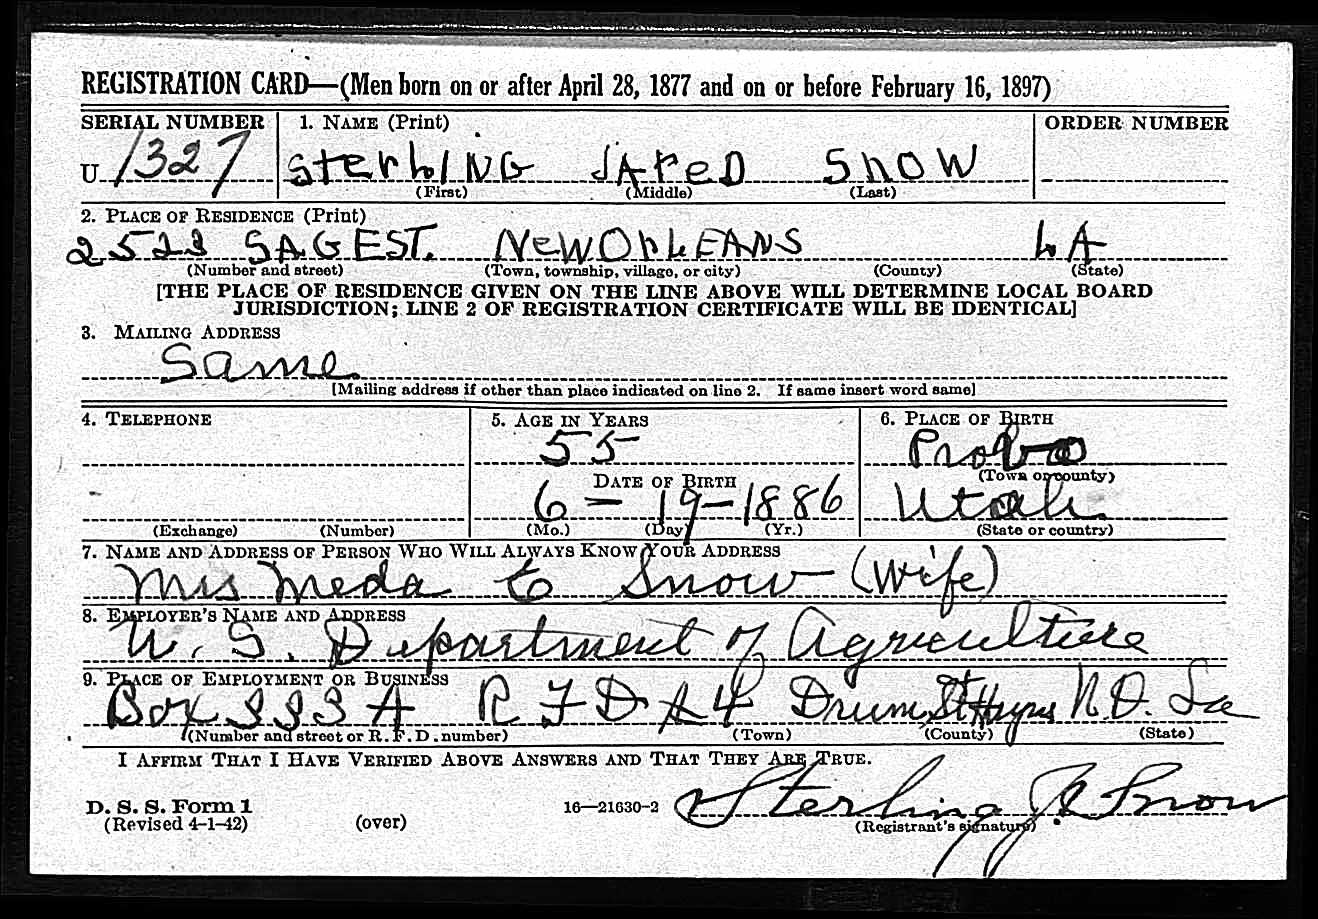 REGISTRATION CARD—(Men born on or after April 28, 1877 and on or before February 16, 1897)
SERIAL NUMBER 1. NAME (Print) ORDER NUMBER
U 1327 STerLING JAreD SNOW
(First) (Middle) (Last)
2. PLACE OF RESIDENCE (Print)
2523 SAGE ST. NeW OrLEANS LA
(Number and street) (Town, township, village, or city) (County) (State)
[THE PLACE OF RESIDENCE GIVEN ON THE LINE ABOVE WILL DETERMINE LOCAL BOARD
JURISDICTION; LINE 2 OF REGISTRATION CERTIFICATE WILL BE IDENTICAL]
3. MAILING ADDRESS
Same
[Mailing address if other than place indicated on line 2. If same insert word same]
4. TELEPHONE 5. AGE IN YEARS 6. PLACE OF BIRTH
55 Provo
(Town or county)
DATE OF BIRTH
6 – 19 – 1886 Utah
(Exchange) (Number) (Mo.) (Day) (Yr.) (State or country)
7. NAME AND ADDRESS OF PERSON WHO WILL ALWAYS KNOW YOUR ADDRESS
Mrs Meda E Snow (Wife)
8. EMPLOYER'S NAME AND ADDRESS
U. S. Department of Agriculture
9. PLACE OF EMPLOYMENT OR BUSINESS
Box 333 A R F D 4 St N.O. La
(Number and street or R. F. D. number) (Town) (County) (State)
I AFFIRM THAT I HAVE VERIFIED ABOVE ANSWERS AND THAT THEY ARE TRUE.
D. S. S. Form 1
(Revised 4-1-42) (over) 16—21630-2 Sterling J. Snow
(Registrant's signature)